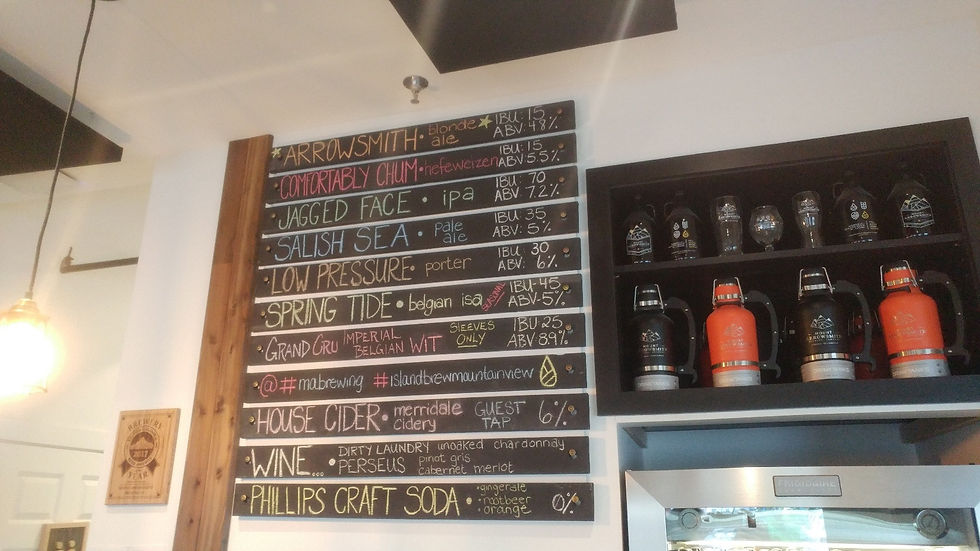 ARROWSMITH • blonde ale IBU: 15 ABV: 4.8%
COMFORTABLY CHUM • hefeweizen IBU: 15 ABV: 5.5%
JAGGED FACE • ipa IBU: 70 ABV: 7.2%
SALISH SEA • Pale ale IBU: 35 ABV: 5%
LOW PRESSURE • porter IBU: 30 ABV: 6%
SPRING TIDE • belgian isa SEASONAL IBU: 45 ABV: 5%
GRAND CRU IMPERIAL BELGIAN WIT SLEEVES ONLY IBU 25 ABV 8.9%
@ # mabrewing #islandbrewmountainview
HOUSE CIDER • merridale cidery GUEST TAP 6%
WINE... • DIRTY LAUNDRY unoaked chardonnay
PERSEUS pinot gris
cabernet merlot
PHILLIPS CRAFT SODA • gingerale
• rootbeer
• orange 0%
BREWERY
2017
YEAR
FRIGIDAIRE